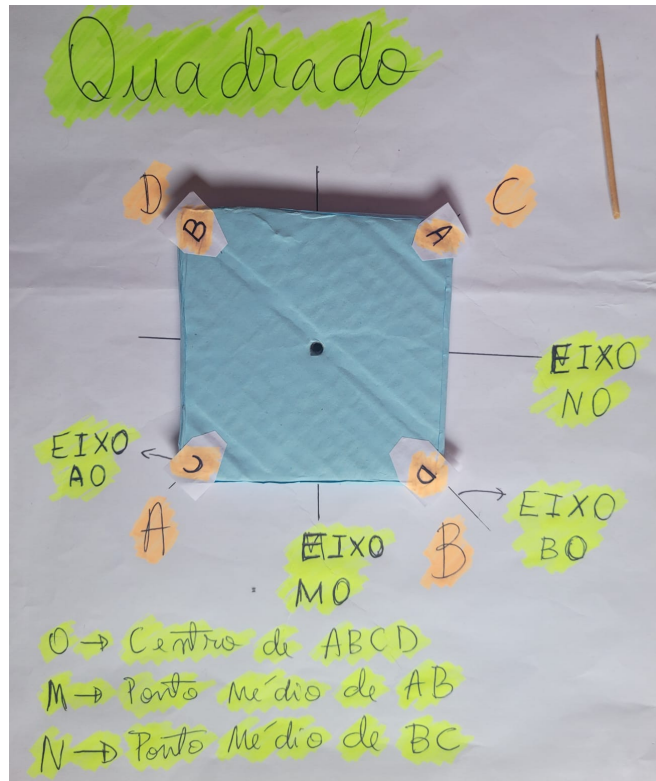 Quadrado
D
C
B
A
EIXO
NO
EIXO
AO
C
D
A
B
EIXO
BO
EIXO
MO
O → Centro de ABCD
M → Ponto Médio de AB
N → Ponto Médio de BC